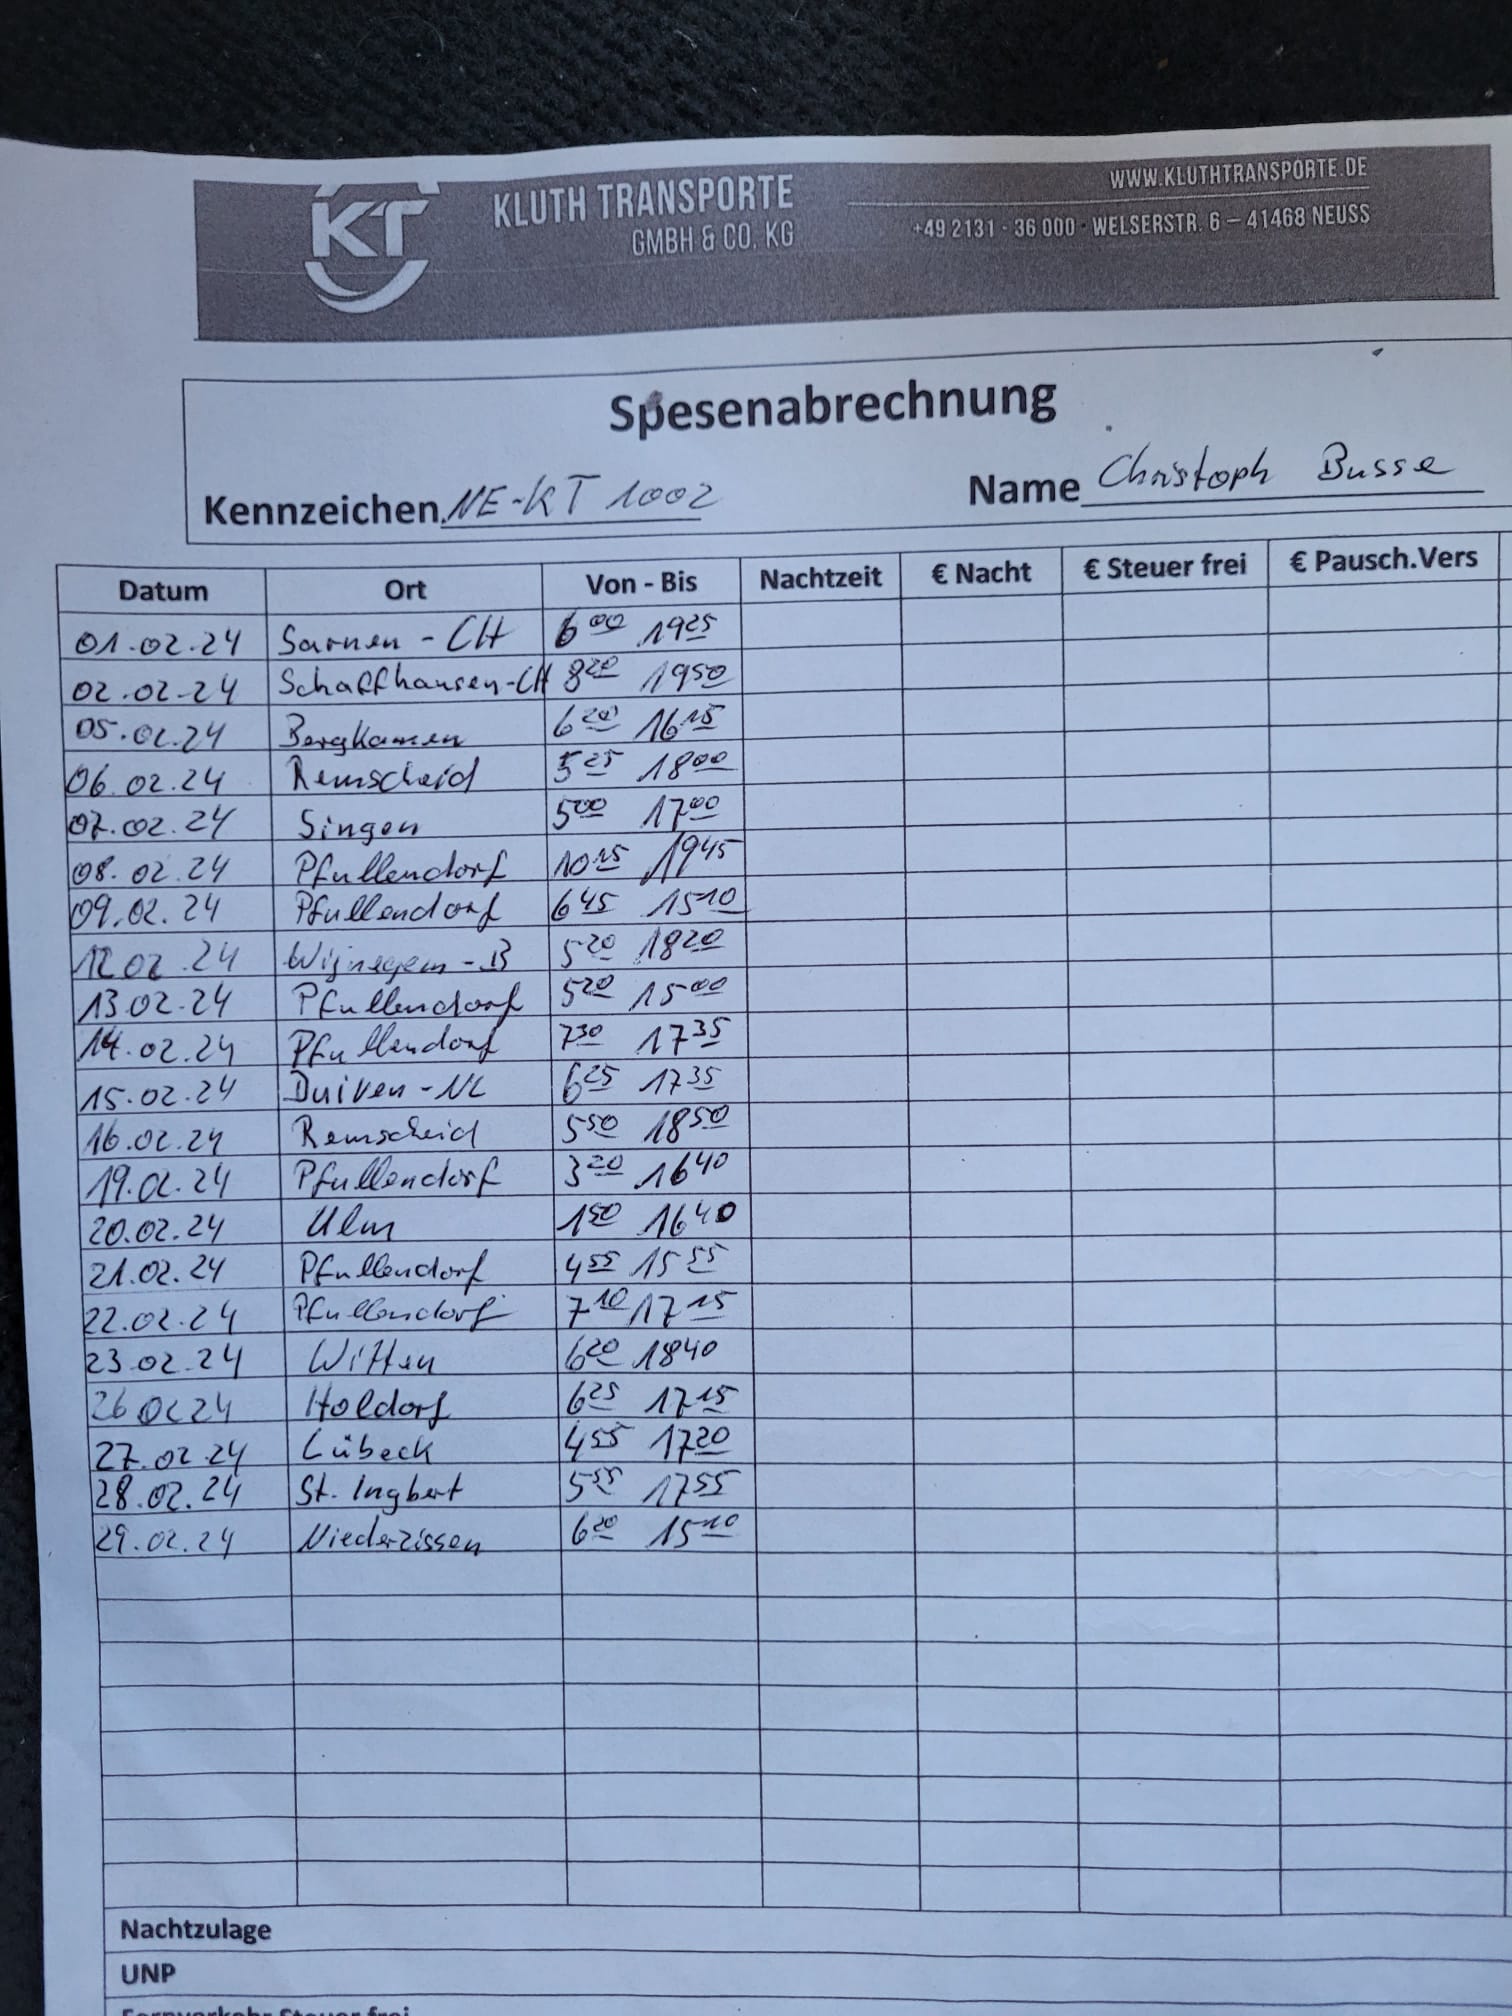 KT
KLUTH TRANSPORTE
GMBH & CO. KG
WWW.KLUTHTRANSPORTE.DE
+49 2131 - 36 000 - WELSERSTR. 6 – 41468 NEUSS
Spesenabrechnung
Kennzeichen NE-KT 1002 Name Christoph Busse
Datum Ort Von - Bis Nachtzeit € Nacht € Steuer frei € Pausch.Vers
01.02.24 Sarnen - CH 6 00 19 25
02.02.24 Schaffhausen-CH 8 20 19 50
05.02.24 Bergkamen 6 20 16 15
06.02.24 Remscheid 5 25 18 00
07.02.24 Singen 5 00 17 00
08.02.24 Pfullendorf 10 15 19 45
09.02.24 Pfullendorf 6 45 15 10
12.02.24 Wijnegem - B 5 20 18 20
13.02.24 Pfullendorf 5 20 15 00
14.02.24 Pfullendorf 7 30 17 35
15.02.24 Duiven - NL 6 25 17 35
16.02.24 Remscheid 5 50 18 50
19.02.24 Pfullendorf 3 20 16 40
20.02.24 Ulm 1 50 16 40
21.02.24 Pfullendorf 4 55 15 55
22.02.24 Pfullendorf 7 10 17 15
23.02.24 Witten 6 20 18 40
26.02.24 Holdorf 6 25 17 15
27.02.24 Lübeck 4 55 17 20
28.02.24 St. Ingbert 5 55 17 55
29.02.24 Niederzissen 6 20 15 10
Nachtzulage
UNP
Fernverkehr Steuer frei